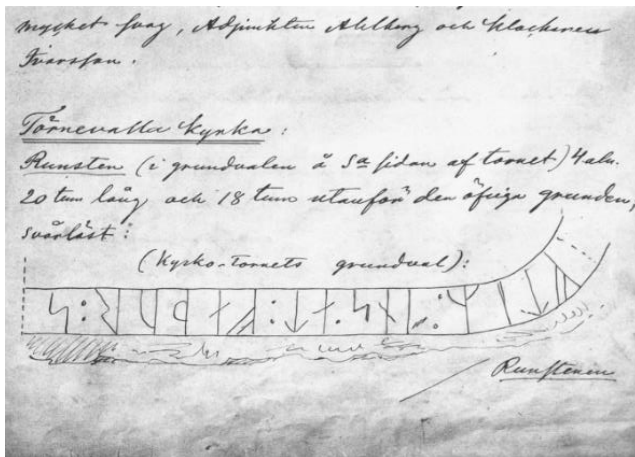 mycket svag, Adjunkten Ahlberg och Klockaren
Ivarsson.
Törnevalla Kyrka:
Runsten (i grundvalen å Sa sidan af tornet) 4 aln.
20 tum lång och 18 tum utanför den öfriga grunden,
svårläst:
(Kyrko-tornets grundval):
Runstenen